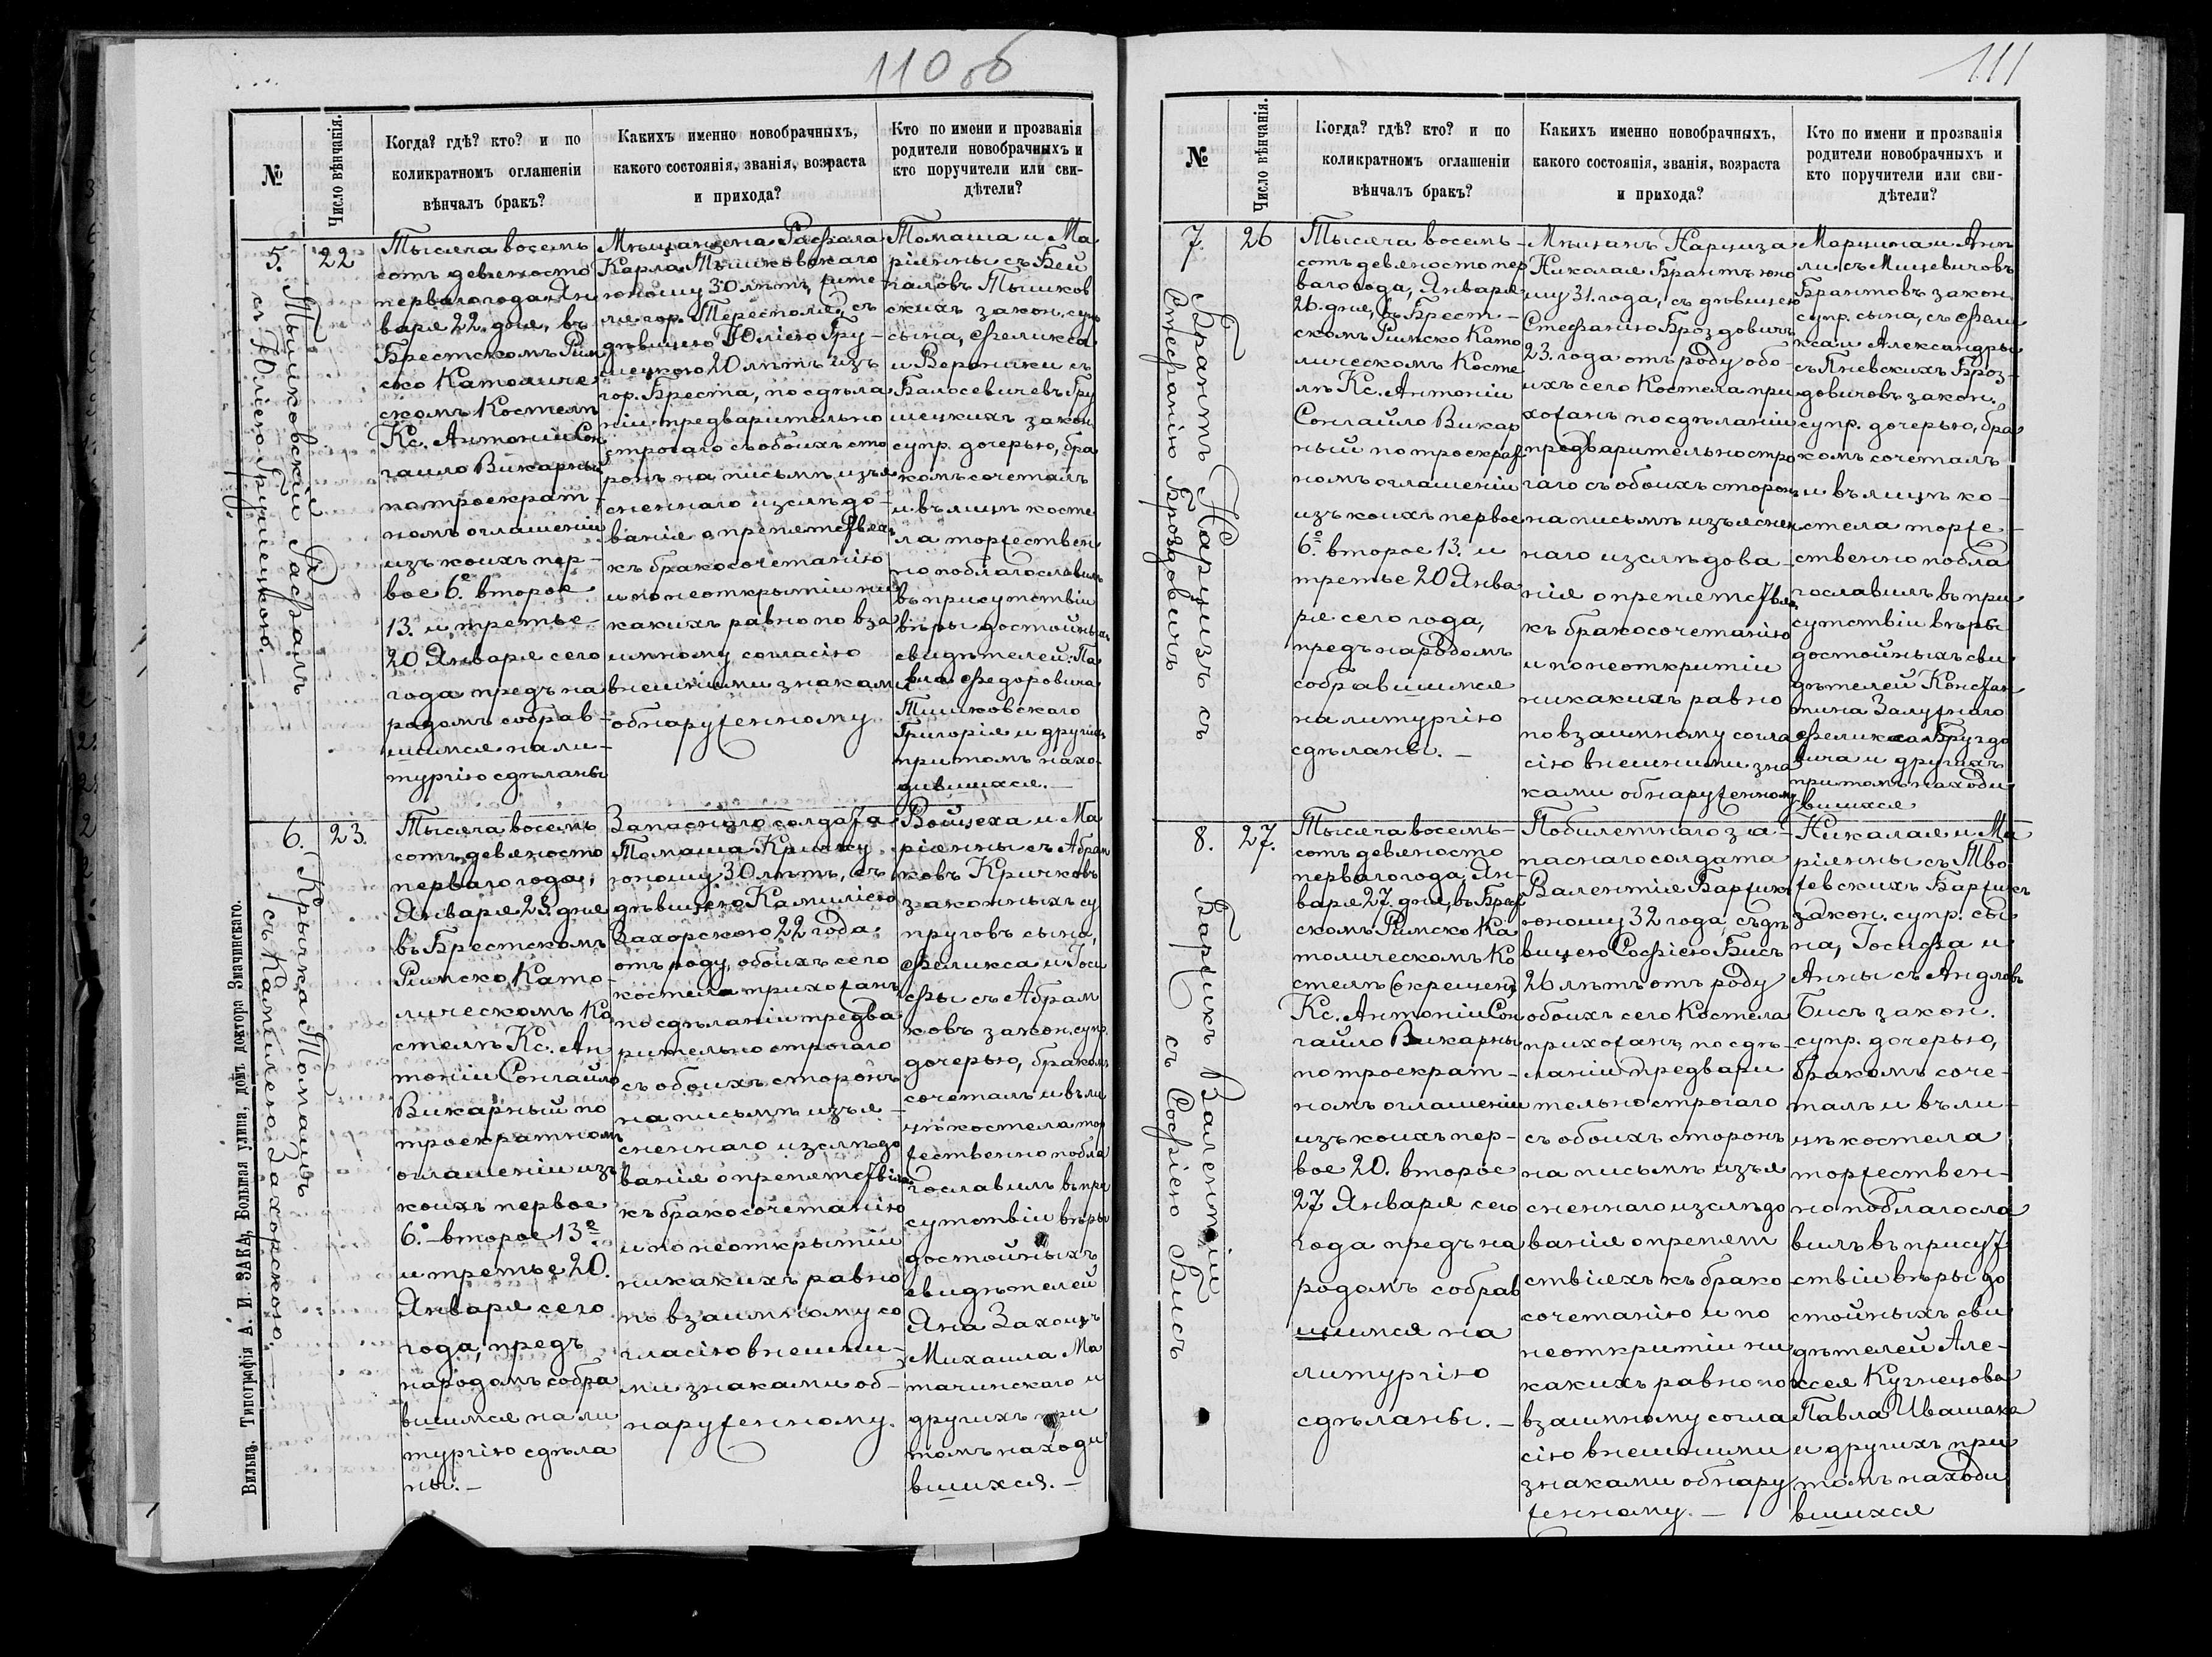 110 об
№
Число вѣнчанія.
Когда? гдѣ? кто? и по
коликратномъ оглашеніи
вѣнчалъ бракъ?
Какихъ именно новобрачныхъ,
какого состоянія, званія, возраста
и прихода?
Кто по имени и прозванія
родители новобрачныхъ и
кто поручители или сви-
дѣтели?
5.
Тышковскій Рафалъ
съ Юліею Грушецкою.
22
Тысяча восемь
сотъ девяносто
перваго года Ян
варя 22. дня, въ
Брестскомъ Рим
ско Католиче
скомъ Костелѣ
Кс. Антоній Сон
гайло Викарный
по троекрат-
номъ оглашеніи
изъ коихъ пер-
вое 6º. второе
13. и третье
20 Января сего
года предъ на
родомъ собрав-
шимся на ли-
тургію сдѣланы
Мѣщанина Рафала
Карла Тышковскаго
юному 30 лѣтъ, жите-
ля гор. Тересполя, съ
дѣвицею Юліею Гру-
шецкою 20 лѣтъ изъ
гор. Бреста, по сдѣла
ніи предварительно
строгаго съ обоихъ сто
ронъ на письмѣ изъя
сненнаго изслѣдо-
ванія о препятствіяхъ
къ бракосочетанію
и по неоткрытіи ни
какихъ равно по вза
имному согласію
внешними знаками
обнаруженному
Томаша и Ма
ріянны съ Бей
паловъ Тышков
скихъ закон. супр
сына, Феликса
и Вероники съ
Балосевичевъ Гру
шецкихъ закон.
супр. дочерью, бра
комъ сочеталъ
и въ лицѣ косте
ла торжествен
но поблагословилъ
въ присутствіи
вѣры достойныхъ
свидѣтелей: Па
вла Федоровича
Тишковскаго
Григорія и другихъ
при томъ нахо-
дившихся.
6.
Крычка Томашъ
съ Камиліею Захорскою.
23.
Тысяча восемь
сотъ девяносто
перваго года,
Января 23. дня
въ Брестскомъ
Римско Като-
лическомъ Ко
стелѣ Кс. Ан
тоній Сонгайло
Викарный по
троекратномъ
оглашеніи изъ
коихъ первое
6º. второе 13º
и третье 20.
Января сего
года, предъ
народомъ собра
вшимся на ли
тургію сдѣла
ны.
Запаснаго солдата
Томаша Кричку
юному 30 лѣтъ, съ
дѣвицею Камиліею
Захорскою 22 года
отъ роду, обоихъ сего
костела прихожанъ
по сдѣланіи предва
рительно строгаго
съ обоихъ сторонъ
на письмѣ изъя-
сненнаго изслѣдо
ванія о препятствіяхъ
къ бракосочетанію
и по неоткрытіи
никакихъ равно
по взаимному со
гласію внешни-
ми знаками об-
наруженному.
Войцеха и Ма
ріянны съ Абрам
ковъ Кричковъ
законныхъ су
пруговъ сына,
Феликса и Іози
фы съ Абрам
ковъ закон. супр.
дочерью, бракомъ
сочеталъ и въ ли
цѣ костела тор
жественно побла
гословилъ въ при
сутствіи вѣры
достойныхъ
свидѣтелей
Яна
Михаила Ма
тачинскаго и
другихъ при
томъ находи
вшихся.
Вильна. Типографія А. И. ЗАКА, Большая улица, домъ доктора Змачинскаго.
111
№
Число вѣнчанія.
Когда? гдѣ? кто? и по
коликратномъ оглашеніи
вѣнчалъ бракъ?
Какихъ именно новобрачныхъ,
какого состоянія, званія, возраста
и прихода?
Кто по имени и прозванія
родители новобрачныхъ и
кто поручители или сви-
дѣтели?
7.
Брантъ Нарцизъ съ
СтефаніеюБроздовичъ
26
Тысяча восемь-
сотъ девяносто пер
ваго года, Января
26. дня, въ Брест-
скомъ Римско Като
лическомъ Косте
лѣ Кс. Антоній
Сонгайло Викар
ный по троекрат
номъ оглашеніи
изъ коихъ первое
6º. второе 13. и
третье 20 Янва
ря сего года,
предъ народомъ
собравшимся
на литургію
сдѣланы.
Мѣщанъ Нарциза
Николая Брантъ юно
му 31. года, съ дѣвицею
Стефаніею Броздовичъ
23. года отъ роду обо-
ихъ сего Костела при
хожанъ по сдѣланіи
предварительно стро
гаго съ обоихъ сторонъ
на письмѣ изъяснен
наго изслѣдова-
нія о препятствіяхъ
къ бракосочетанію
и по неоткритіи
никакихъ равно
по взаимному согла
сію внешними зна
ками обнаруженному
Марцина и Ане
ли съ Мицевичовъ
Брантовъ закон.
супр. сына, съ Фели
кса и Александры
съ Пневскихъ Броз-
довичовъ закон.
супр. дочерью, бра
комъ сочеталъ
и въ лицѣ ко-
стела торже-
ственно побла
гословилъ въ при
сутствіи вѣры
достойныхъ сви
дѣтелей Констан
тина Залужнаго
Феликса
вича и другихъ
при томъ находи
вшихся
8.
Баржикъ Валентій
съ Софіею Бисъ
27.
Тысяча восемь-
сотъ девяносто
перваго года Ян-
варя 27. дня, въ Брест
скомъ Римско Ка
толическомъ Ко
стелѣ
Кс. Антоній Сон
гайло Викарный
по троекрат-
номъ оглашеніи
изъ коихъ пер-
вое 20. второе
27 Января сего
года предъ на
родомъ собрав
шимся на
литургію
сдѣланы.
Побилетнаго за-
паснаго солдата
Валентія Баржикъ
юному 32 года, съ дѣ
вицею Софіею Бисъ
26 лѣтъ отъ роду
обоихъ сего Костела
прихожанъ, по сдѣ-
ланіи предвари
тельно строгаго
съ обоихъ сторонъ
на письмѣ изъя
сненнаго изслѣдо
ванія о препят
ствіяхъ къ брако
сочетанію и по
неоткритіи ни
какихъ равно по
взаимному согла
сію внешними
знаками обнару
женному.
Николая и Ма
ріянны съ Тво
жевскихъ Баржикъ
закон. супр. сы
на, Іосифа и
Анны съ Андловъ
Бисъ закон.
супр. дочерью,
бракомъ соче-
талъ и въ ли-
цѣ костела
торжествен-
но поблагосло
вилъ въ присут
ствіи вѣры до
стойныхъ сви
дѣтелей Але-
ксея Кузнецова
Павла Ивашака
и другихъ при
томъ находи
вшихся